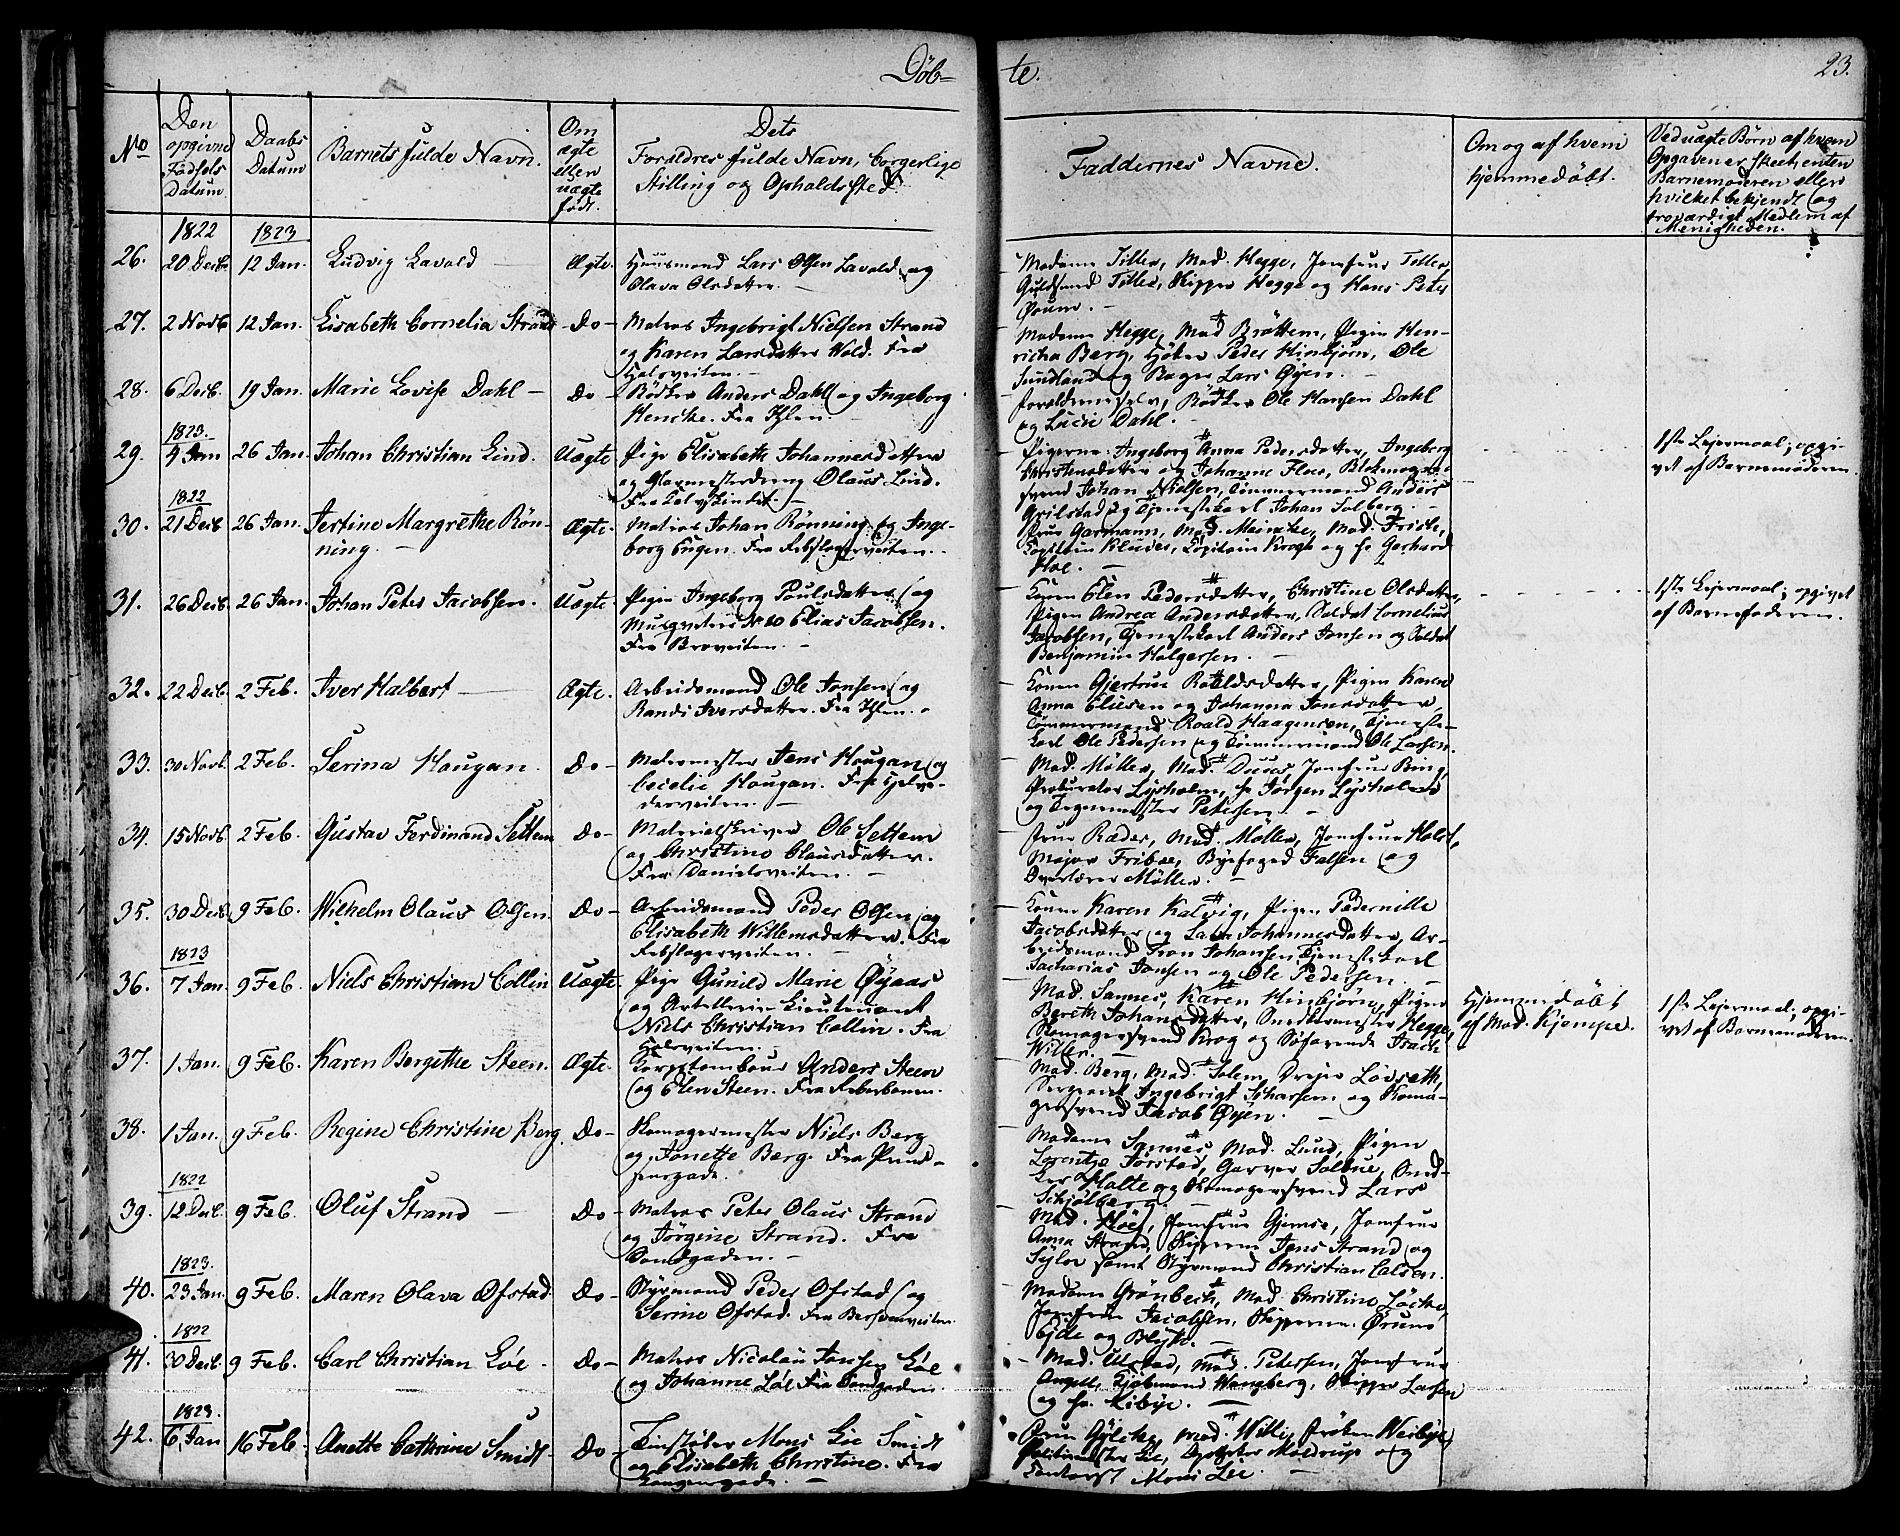 Döb=
te.
23.
No
Den opgivne Födsels Datum
Daabs Datum
Barnets fulde Navn.
Om ægte eller uægte født.
Dets Forældres fulde Navn, borgerlige Stilling og Opholdssted.
Faddernes Navne.
Om og af hvem hjemmedøbt.
Ved uægte Børn af hvem Opgaven er skeet, enten Barnemoderen eller hvilket bekjendt og troværdigt Medlem af Menigheden.
1822
1823
26. 20 Decb. 12 Jan. Ludvig Lavold Ægte. Huusmand Lars Olsen Lavold og
Olava Olsdatter.
Madame Tiller, Mad. Hegge, Jomfrue Tiller,
Guldsmed Tiller, Skipper Hegge og Hans Peter
27. 2 Novb 12 Jan. Lisabeth Cornelia Strand Do Matros Ingebrigt Nielsen Strand
og Karen Larsdatter Wold. Fra
Madame Hegge, Mad Bröttem, Pigen Hen-
richa Berg, Peder Hinbjörn, Ole
Sundland og Lars Öyen.
28. 6 Decb. 19 Jan. Marie Lovise Dahl Do Bödker Anders Dahl og Ingeborg
Hencke. Fra Ihlen.
Forældrene selv, Bödker Ole Hansen Dahl
og Lucie Dahl.
1823.
29. 4 Jan 26 Jan. Johan Christian Lind. Uægte Pige Elisabeth Johannesdatter
og Olaus Lind.
Pigerne Ingeborg Anna Pedersdatter, Ingeborg
Christensdatter og Johanne Floer,
svend Johan Nielsen, Tömmermand Anders
Grilstad og Tjenestekarl Johan Solberg.
1ste Lejermaal; opgi-
vet af Barnemoderen
1822
30. 21 Decb 26 Jan. Jertine Margrethe Rön-
ning. Ægte. Matros Johan Rönning og Inge-
borg Eugen. Fra Rebslagerveiten.
Frue Garmann, Mad. Meincke, Mad. Frich,
Capitain Klüver, Capitain Krogh og Hr. Gerhard
Hoe.
31. 26 Decb. 26 Jan. Johan Peter Jacobsen. Uægte. Pige Ingeborg Poulsdatter og
Musqueteer No 60 Elias Jacobsen.
Fra Broveiten.
Konen Elen Pedersdatter, Christine Olsdatter,
Pigen Andrea Andersdatter, Soldat Cornelius
Jacobsen, Tjenestekarl Anders Jonsen og Soldat
Benjamin Holgersen.
1ste Lejermaal; opgivet
af Barnefaderen.
32. 22 Decb. 2 Feb. Iver Halbert Ægte. Arbeidsmand Ole Jonsen og
Randi Iversdatter. Fra Ihlen.
Konen Gjertrue Roaldsdatter, Pigen Karen
Anna Eliesen og Johanna Jonsdatter,
Tömmermand Roald Haagensen, Tjeneste-
karl Ole Pedersen og Tömmermand Ole Larsen.
33. 30 Novb. 2 Feb. Serina Hougan. Do Jens Hougan og
Cecelie Hougan.
Mad. Möller, Mad. Duus, Jomfrue Bing,
Procurator Lysholm, Hr. Jörgen Lysholm
og Petersen.
34. 15 Novb. 2 Feb. Gustav Ferdinand Settem Do Materialskriver Ole Settem
og Christine Clausdatter.
Fra Danielsveiten.
Frue Ræder, Mad. Möller, Jomfrue Holst,
Major Friboe, Byefoged Falsen og
Overlærer Möller.
35. 30 Decb. 9 Feb. Wilhelm Olaus Olsen. Do Arbeidsmand Peder Olsen og
Elisabeth Willemsdatter. Fra
Rebslagerveiten.
Konen Karen Kalvig, Pigen Pedernille
Jacobsdatter og Johannesdatter, Ar-
beidsmand Tron Johansen Tjenestekarl
Zacharias Jansen og Ole Pedersen.
1823
36. 7 Jan. 9 Feb. Niels Christian Collin Uægte. Pige Gunild Marie Öyaas
og Artellerie-Lieutenant
Niels Christian Collin. Fra
Mad. Sannes, Karen Hinbjörn, Pigen
Bereth Johansdatter, Snedkermester Hegge,
Skomagersvend Krog og Söfarende Isach
Willer.
Hjemmedøbt
af Mad. Kjempe.
1ste Lejermaal; opgi-
vet af Barnemoderen.
37. 1 Jan. 9 Feb. Karen Bergethe Steen. Ægte. Anders Steen
og Elen Steen. Fra
Mad. Berg, Mad. Solem, Drejer Lövseth,
Sergeant Ingebrigt og Skoma-
gersvend Jacob Öyen.
38. 1 Jan. 9 Feb. Regine Christine Berg Do Skomagermester Niels Berg
og Jonette Berg. Fra Prind-
sensgade.
Madame Sannes, Mad. Lund, Pigen
Lorentze Forstad, Garver Solbue, Sned-
ker Holte og Skomagersvend Lars
Schjölberg.
1822
39. 12 Decb. 9 Feb. Oluf Strand Do Matros Peter Olaus Strand
og Jörgine Strand. Fra
Sandgaden.
Mad. Höeg, Jomfrue Gjemse, Jomfrue
Anna Strand, Skipperne Jens Strand og
samt Styrmand Christian
1823.
40. 23 Jan. 9 Feb. Maren Olava Ofstad Do Styrmand Peder Ofstad og
Serine Ofstad. Fra Bersvenveiten.
Madame Grönbech, Mad. Christine Löcke,
Jomfrue Jacobsen, Skipperne
Ejde og
1822
41. 30 Decb. 9 Feb. Carl Christian Löe. Do Matros Nicolai Jansen Löe
og Johanne Löe Fra Sandgaden.
Mad. Ulstad, Mad. Petersen, Jomfrue
Angell, Kjöbmand Wangberg, Skipper Larsen
og Hr. Kibye.
1823.
42. 6 Jan 16 Feb. Anette Cathrine Smidt Do Tinstöber Mons Lie Smidt
og Elisabeth Christine. Fra
Kongensgade.
Mad. Wille, Fröken Weibye,
Lie, og
Mons Lie.